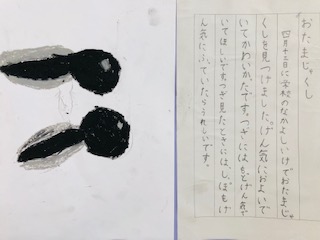 おたまじゃくし
四月十三日に学校のなかよしいけでおたまじゃ
くしを見つけました。げん気におよいで
いてかわいかったです。つぎには、もっとげん気で
いてほしいです。つぎ見たときには、しっぽもげ
ん気にふっていたらうれしいです。